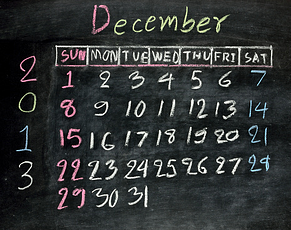 December
SUN MON TUE WED THU FRI SAT
1 2 3 4 5 6 7
8 9 10 11 12 13 14
15 16 17 18 19 20 21
22 23 24 25 26 27 28
29 30 31
2
0
1
3